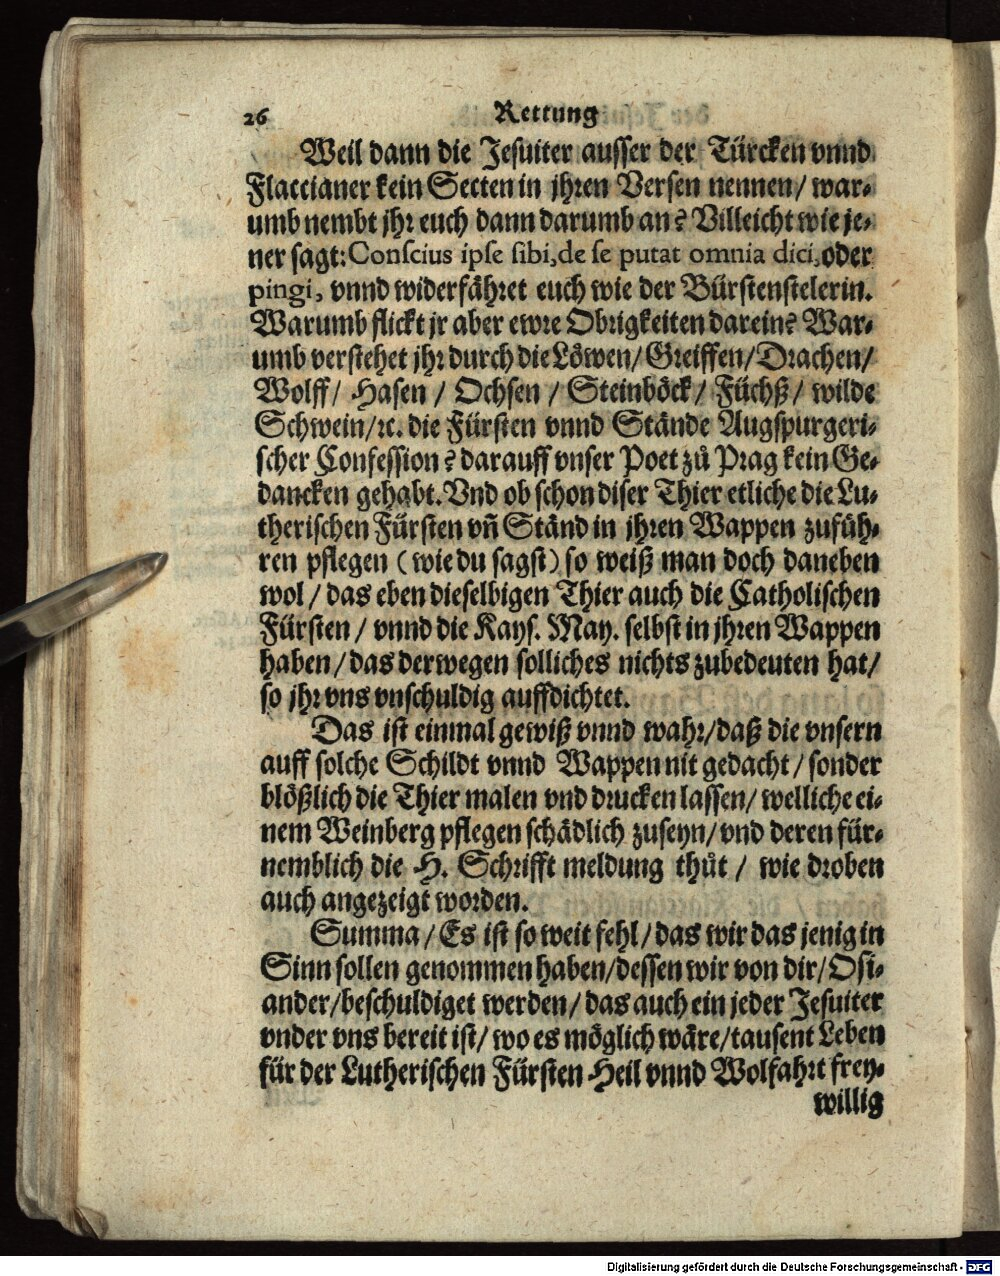 26 Rettung
Weil dann die Jesuiter ausser der Türcken vnnd
Flaccianer kein Secten in jhren Versen nennen/ war-
umb nembt jhr euch dann darumb an? Villeicht wie je-
ner sagt: Conſcius ipſe ſibi, de ſe putat omnia dici, oder
pingi, vnnd widerfähret euch wie der Bürstenstelerin.
Warumb flickt jr aber ewre Obrigkeiten darein? War-
umb verstehet jhr durch die Löwen/ Greiffen/ Drachen/
Wolff/ Hasen / Ochsen / Steinböck/ Füchß/ wilde
Schwein/ ꝛc. die Fürsten vnnd Stände Augspurgeri-
scher Confession? darauff vnser Poet zů Prag kein Ge-
dancken gehabt. Vnd ob schon diser Thier etliche die Lu-
therischen Fürsten vñ Ständ in jhren Wappen zufüh-
ren pflegen ( wie du sagst) so weiß man doch daneben
wol / das eben dieselbigen Thier auch die Catholischen
Fürsten / vnnd die Kays. May. selbst in jhren Wappen
haben/ das derwegen solliches nichts zubedeuten hat/
so jhr vns vnschuldig auffdichtet.
Das ist einmal gewiß vnnd wahr/ daß die vnsern
auff solche Schildt vnnd Wappen nit gedacht/ sonder
blößlich die Thier malen vnd drucken lassen/ welliche ei-
nem Weinberg pflegen schädlich zuseyn/ vnd deren für-
nemblich die H. Schrifft meldung thůt / wie droben
auch angezeigt worden.
Summa/ Es ist so weit fehl/ das wir das jenig in
Sinn sollen genommen haben/ dessen wir von dir/ Osi-
ander/ beschuldiget werden/ das auch ein jeder Jesuiter
vnder vns bereit ist/ wo es möglich wäre/ tausent Leben
für der Lutherischen Fürsten Heil vnnd Wolfahrt frey-
willig
Digitalisierung gefördert durch die Deutsche Forschungsgemeinschaft - DFG